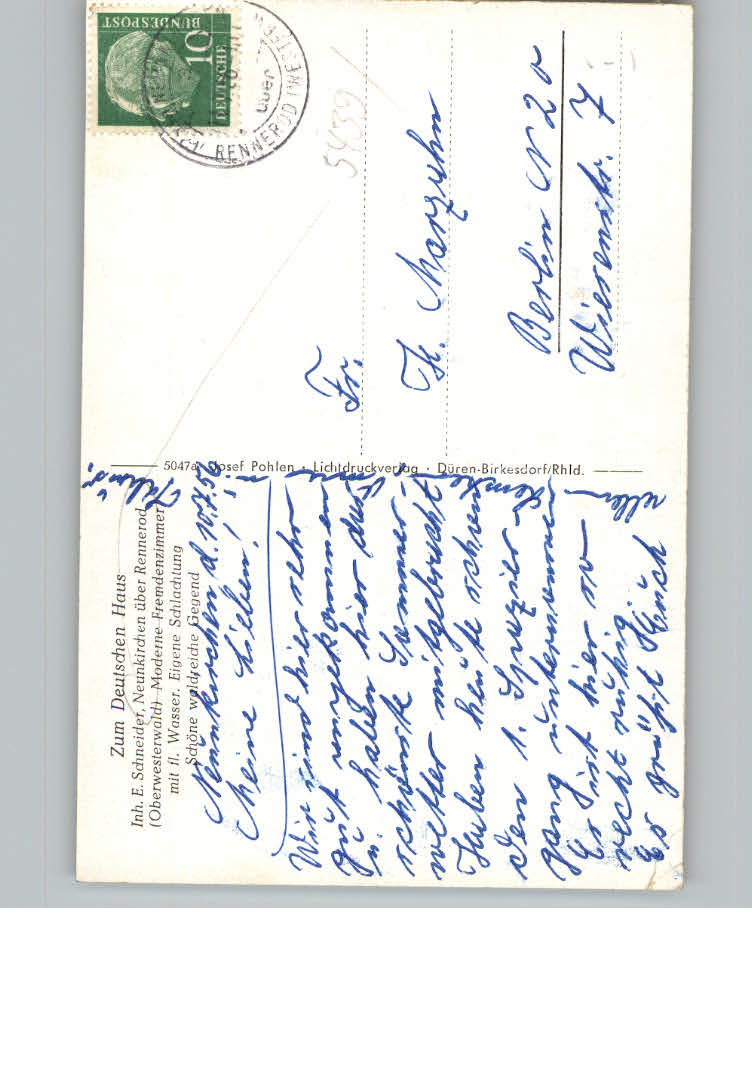 Zum Deutschen Haus
Inh. E. Schneider, Neunkirchen über Rennerod
(Oberwesterwald) Moderne Fremdenzimmer
mit fl. Wasser. Eigene Schlachtung
Schöne waldreiche Gegend
Neunkirchen d. 10.7.56
Meine Lieben!
Wir sind hier sehr
gut angekommen
u. haben hier das
schönste Sommer-
wetter mitgebracht
Haben heute schon
den 1. Spazier-
gang unternommen
Es ist hier so
recht ruhig
Es grüßt Euch
allen
5047a Josef Pohlen · Lichtdruckverlag · Düren-Birkesdorf/Rhld.
DEUTSCHE
BUNDESPOST
10
RENNEROD (WESTERW
über
5439
Fr.
Marzahn
Berlin N 20
7